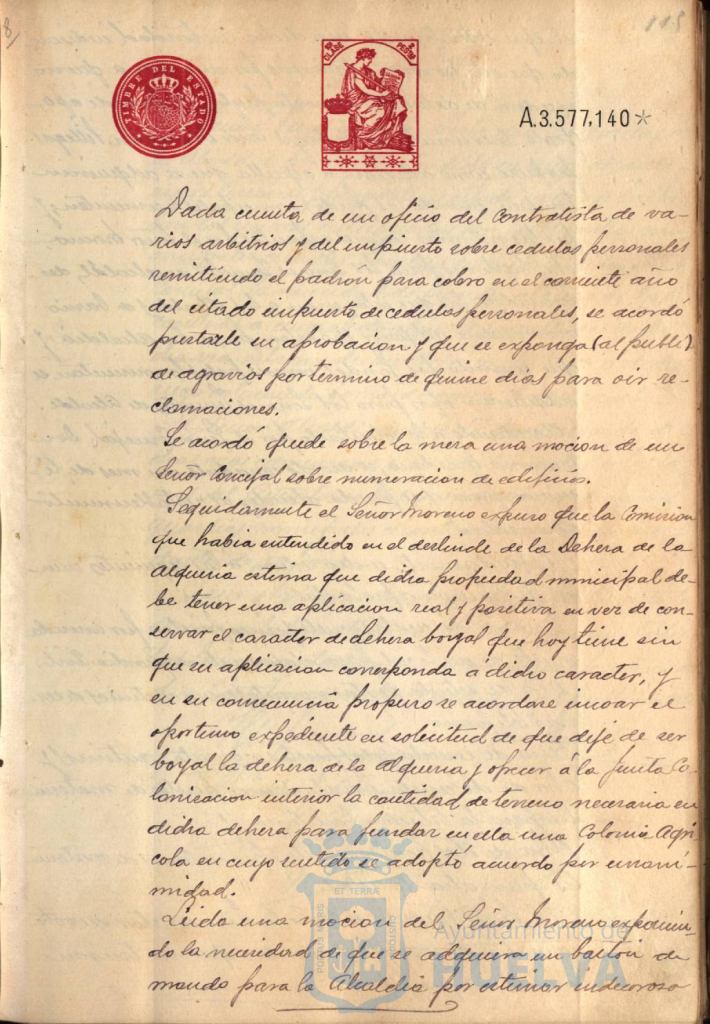 8/
115
TIMBRE DEL ESTADO
CLASE
PESTAS
A.3.577,140*
Dada cuenta de un oficio del Contratista de va-
rios arbitrios y del impuesto sobre cedulas personales
remitiendo el padrón para cobro en el corriente año
del citado impuesto de cedulas personales, se acordó
prestarle su aprobacion y que se exponga (al publi)
de agravios por termino de quince dias para oir re-
clamaciones.
Se acordó quede sobre la mesa una mocion de un
Señor Concejal sobre numeracion de edificios.
Seguidamente el Señor Moreno expuso que la Comision
que habia entendido en el deslinde de la Dehesa de la
Alqueria estima que dicha propiedad municipal de-
be tener una aplicacion real y positiva en vez de con-
servar el caracter de dehesa boyal que hoy tiene sin
que su aplicacion corresponda á dicho caracter, y
en su consecuencia propuso se acordase incoar el
oportuno expediente en solicitud de que deje de ser
boyal la dehesa de la Alqueria y ofrecer á la Junta Co-
lonizacion interior la cantidad de terreno necesaria en
dicha dehesa para fundar en ella una Colonia Agri-
cola en cuyo sentido se adoptó acuerdo por unani-
midad.
Leida una mocion del Señor Moreno exponien-
do la necesidad de que se adquiera un baston de
mando para la Alcaldia por estimar indecoroso
ET TERRÆ
PORTUS MARIS
CUSTODIA
Ayuntamiento de
HUELVA